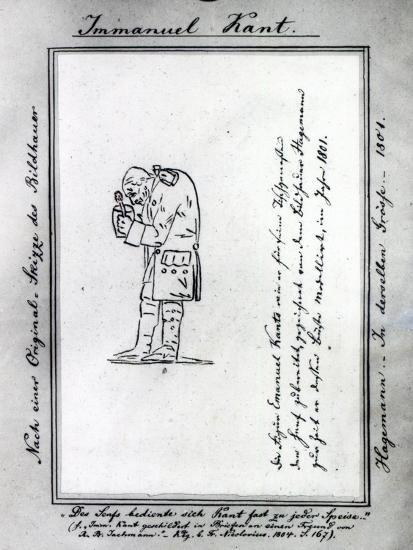 Immanuel Kant.
Nach einer Original-Skizze des Bildhauer
Hagemann – In derselben Grösse – 1801.
Die Figur Emanuel Kants wie er für seine Tischgenossen
den Senf zubereitet, gezeichnet von dem Bildhauer Hagemann
zur Zeit er dessen Büste modellirte, im Jahr 1801.
„Des Senfs bediente sich Kant fast zu jeder Speise.."
(S. „Imm. Kant geschildert in Briefen an einen Freund von
R. B. Jachmann." – Kbg. b. Fr. Nicolovius. 1804. S. 167).